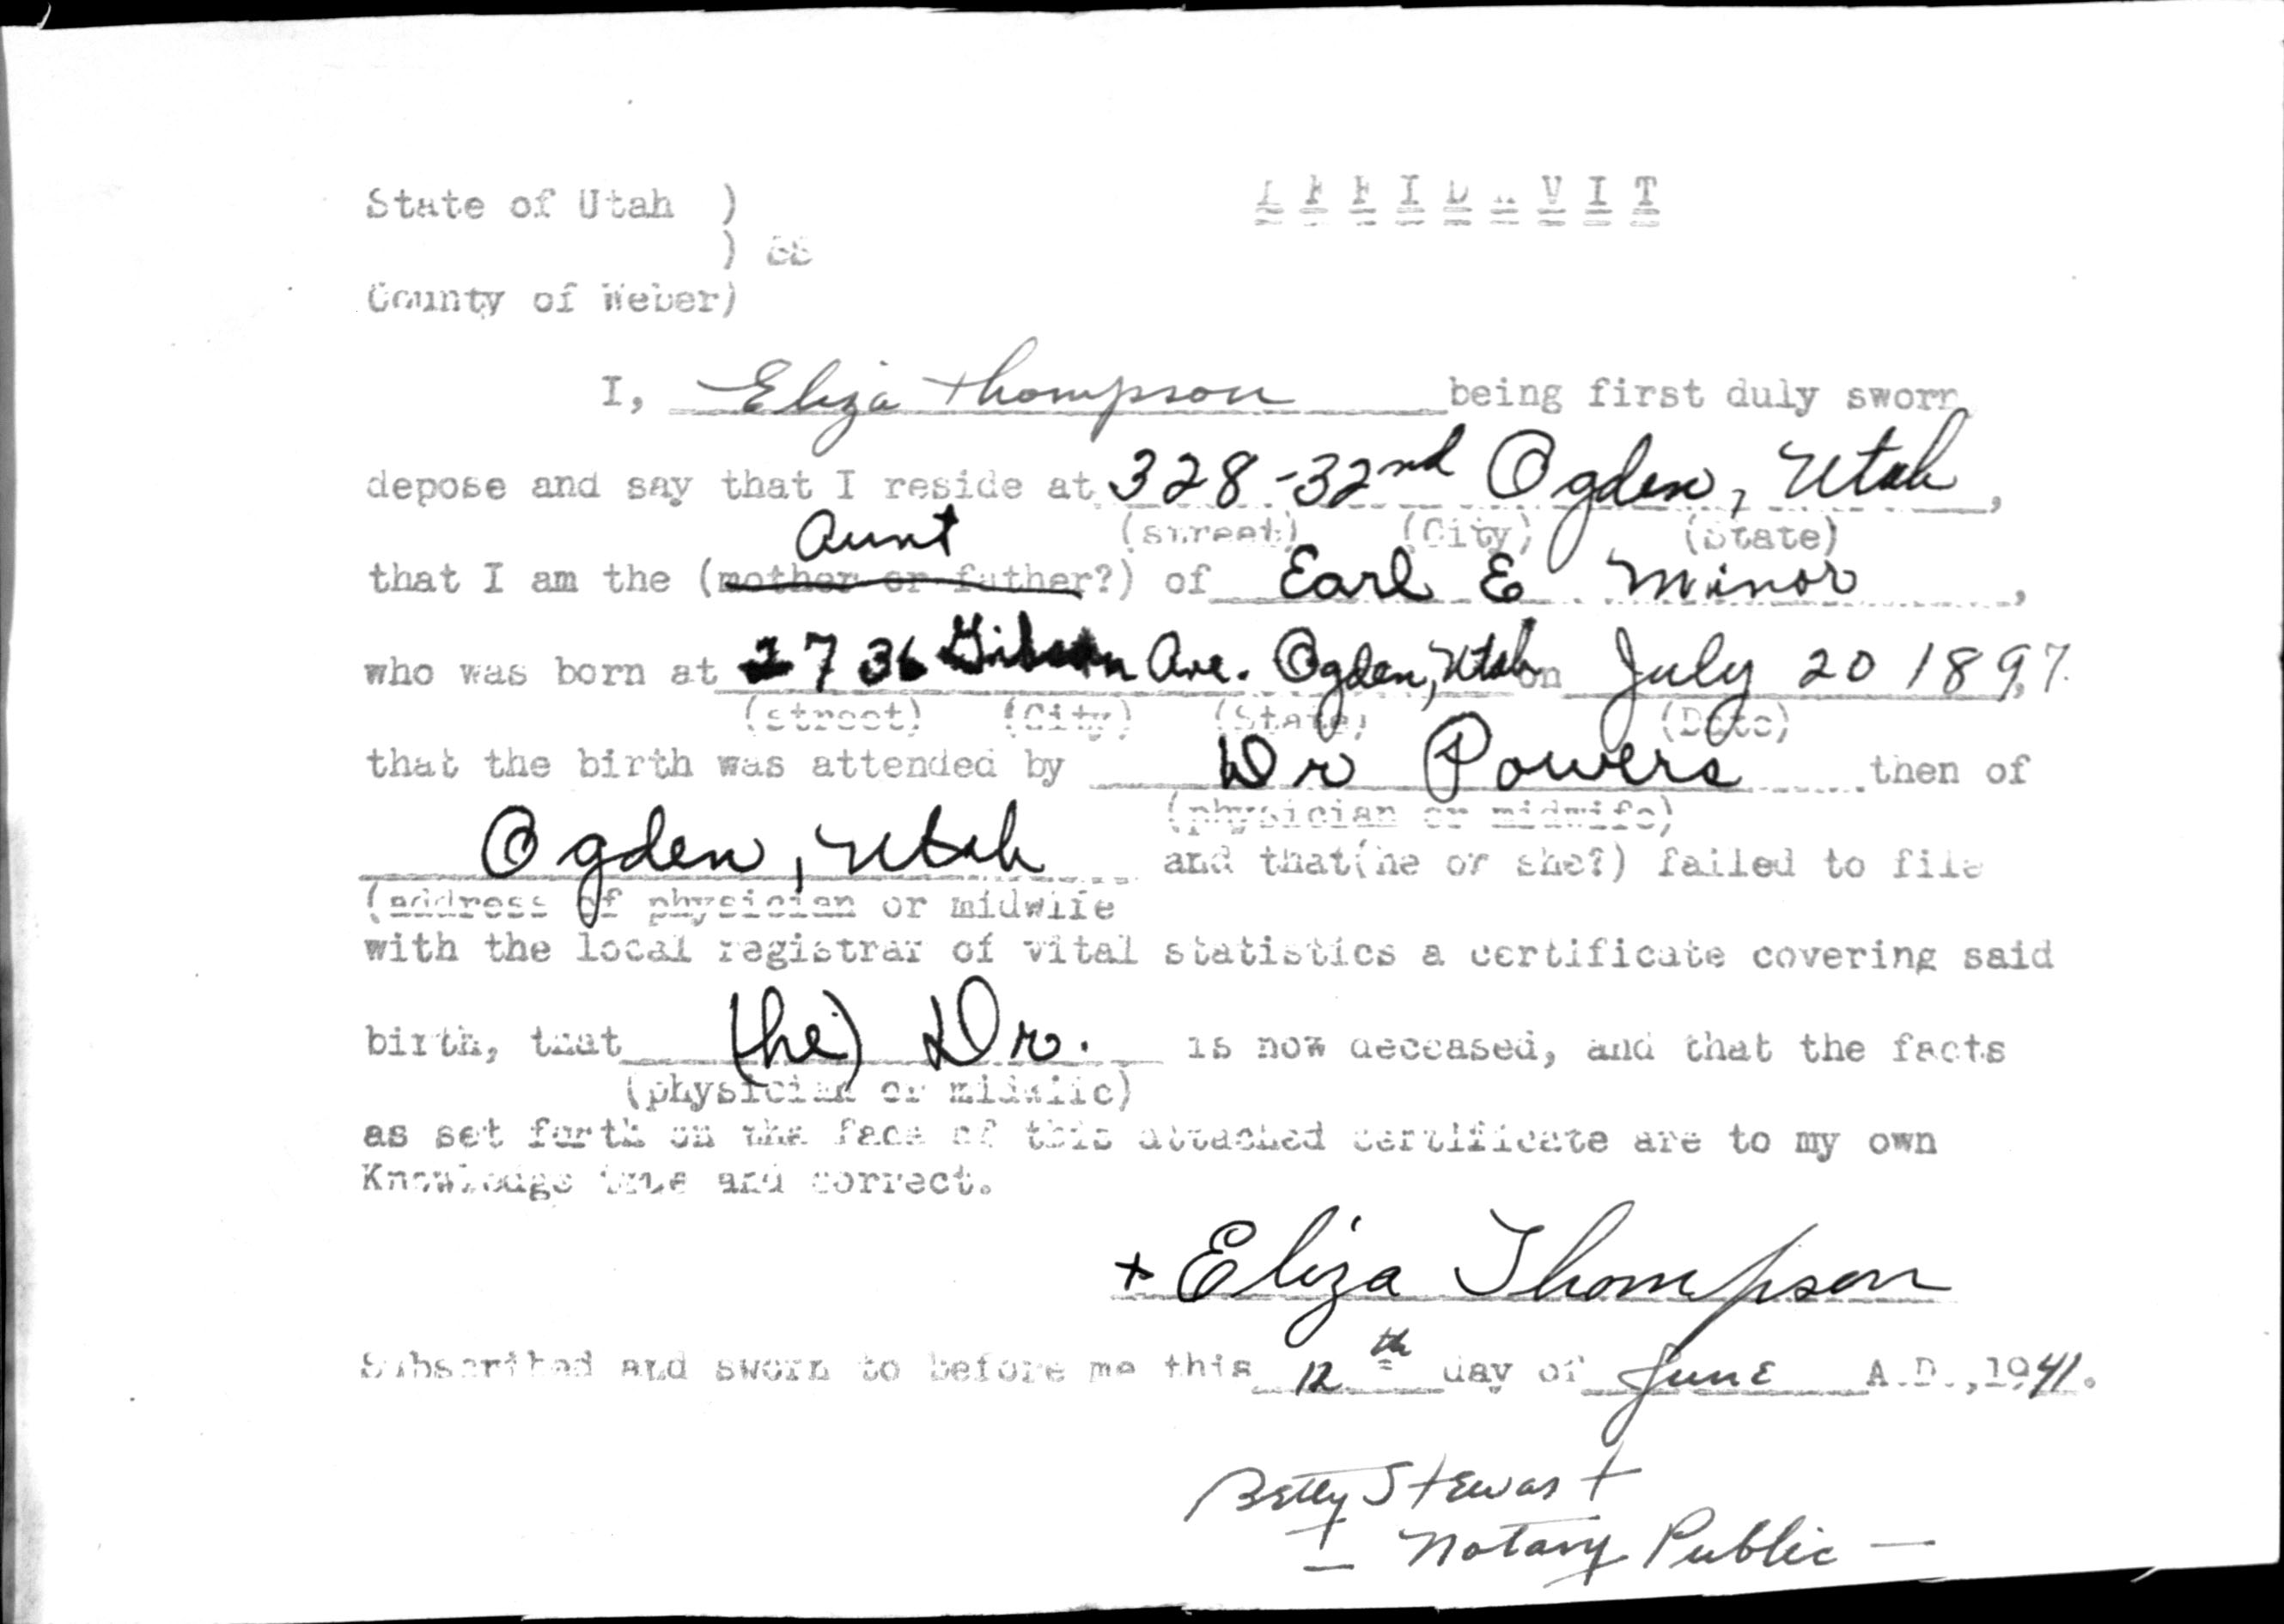 State of Utah ) AFFIDAVIT
) ss
County of Weber)
I, Eliza Thompson being first duly sworn
depose and say that I reside at 328-32nd Ogden, Utah,
Aunt (street) (City) (State)
that I am the (mother or father?) of Earl E Minor,
who was born at 2736 Gibson Ave. Ogden, Utah on July 20 1897.
(street) (City) (State) (Date)
that the birth was attended by Dr Powers then of
(physician or midwife)
Ogden, Utah and that(he or she?) failed to file
(address of physician or midwife
with the local registrar of vital statistics a certificate covering said
birth, that (he) Dr. is now deceased, and that the facts
(physician or midwife)
as set forth on the face of this attached certificate are to my own
Knowledge true and correct.
+ Eliza Thompson
Subscribed and sworn to before me this 12th day of June A.D.,1941.
Betty Stewart
- Notary Public -